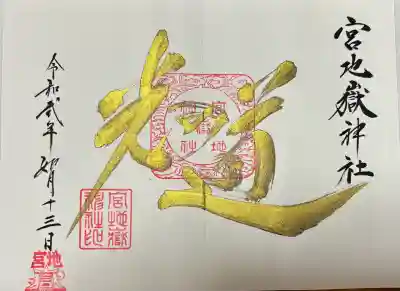 宮地嶽神社
光の道
宮地嶽神社
宮地嶽神社印
令和弐年 如月十三日